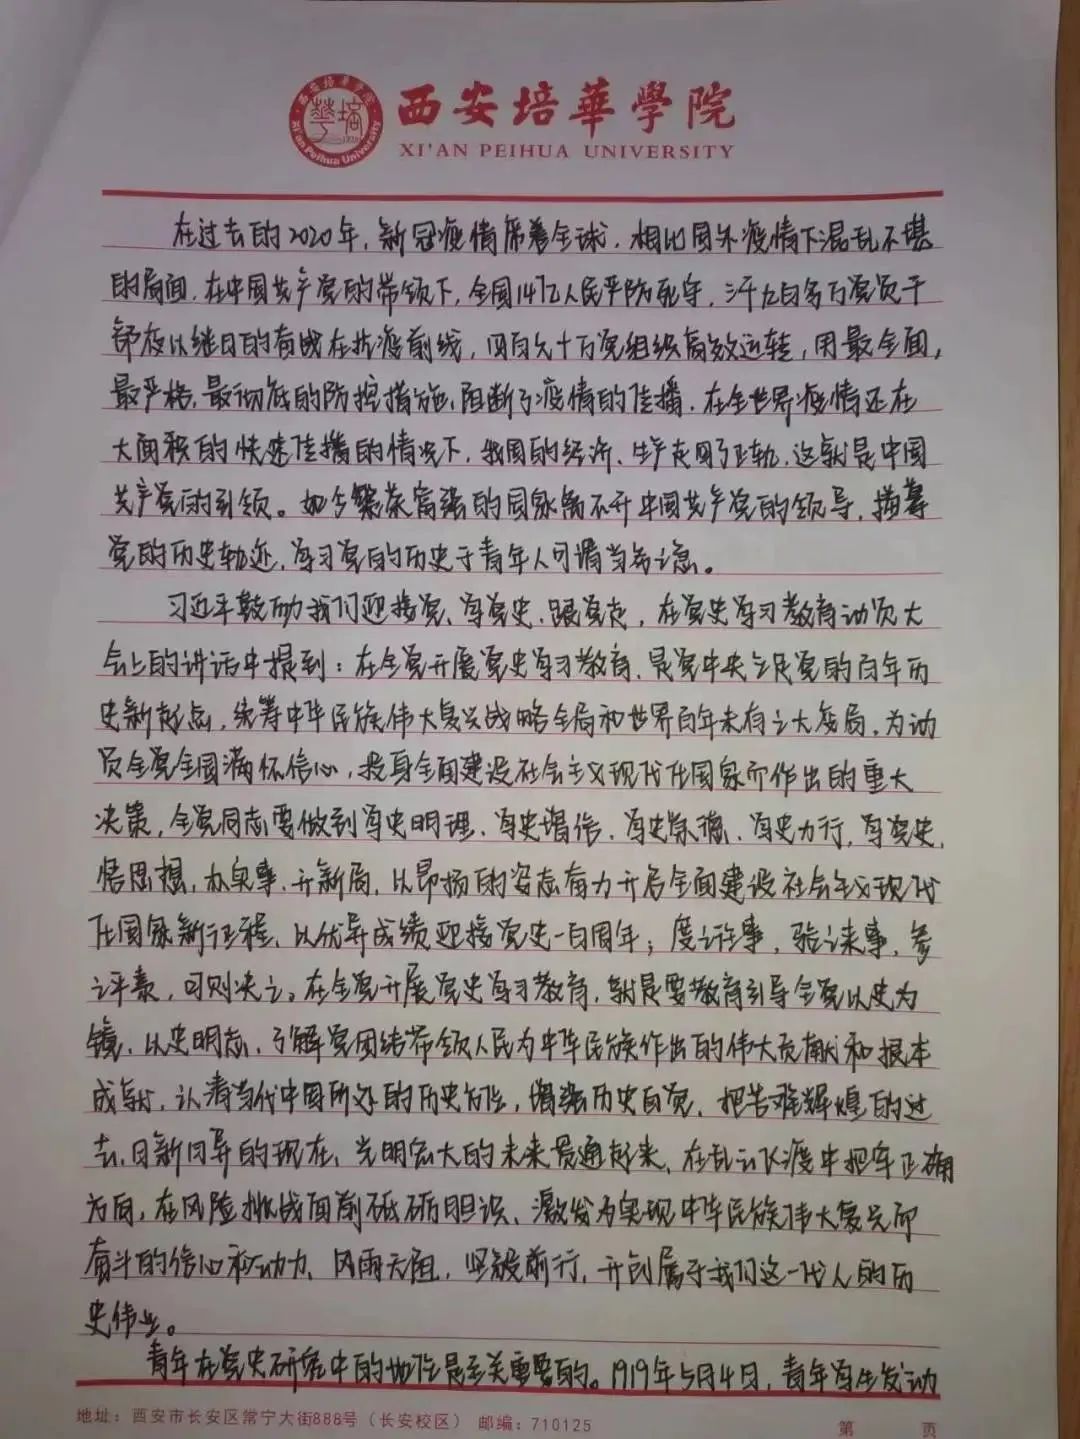 西安培華學院
XI'AN PEIHUA UNIVERSITY
在过去的2020年，新冠疫情席卷全球，相比国外疫情下混乱不堪
的局面，在中国共产党的带领下，全国14亿人民严防死守，三千九百多万党员干
部夜以继日的奋战在抗疫前线，四百六十万党组织高效运转，用最全面，
最严格，最彻底的防控措施，阻断了疫情的传播，在全世界疫情还在
大面积的快速传播的情况下，我国的经济、生产走回了正轨，这就是中国
共产党的引领。如今繁荣富强的国家离不开中国共产党的领导，描摹
党的历史轨迹，学习党的历史于青年人可谓当务之急。
习近平鼓励我们迎接党、学党史、跟党走，在党史学习教育动员大
会上的讲话中提到：在全党开展党史学习教育，是党中央立足党的百年历
史新起点，统筹中华民族伟大复兴战略全局和世界百年未有之大变局，为动
员全党全国满怀信心，投身全面建设社会主义现代化国家而作出的重大
决策，全党同志要做到学史明理、学史增信、学史崇德、学史力行，学党史，
悟思想，办实事，开新局，以昂扬的姿态奋力开启全面建设社会主义现代
化国家新征程，以优异成绩迎接党史一百周年；度之往事，验之来事，参
之平素，可则决之。在全党开展党史学习教育，就是要教育引导全党以史为
镜、以史明志，了解党团结带领人民为中华民族作出的伟大贡献和根本
成就，认清当代中国所处的历史方位，增强历史自觉，把苦难辉煌的过
去、日新月异的现在、光明宏大的未来贯通起来，在乱云飞渡中把牢正确
方向，在风险挑战面前砥砺胆识，激发为实现中华民族伟大复兴而
奋斗的信心和动力，风雨无阻，坚毅前行，开创属于我们这一代人的历
史伟业。
青年在党史研究中的地位是至关重要的。1919年5月4日，青年学生发动
地址：西安市长安区常宁大街888号（长安校区） 邮编：710125
第 页